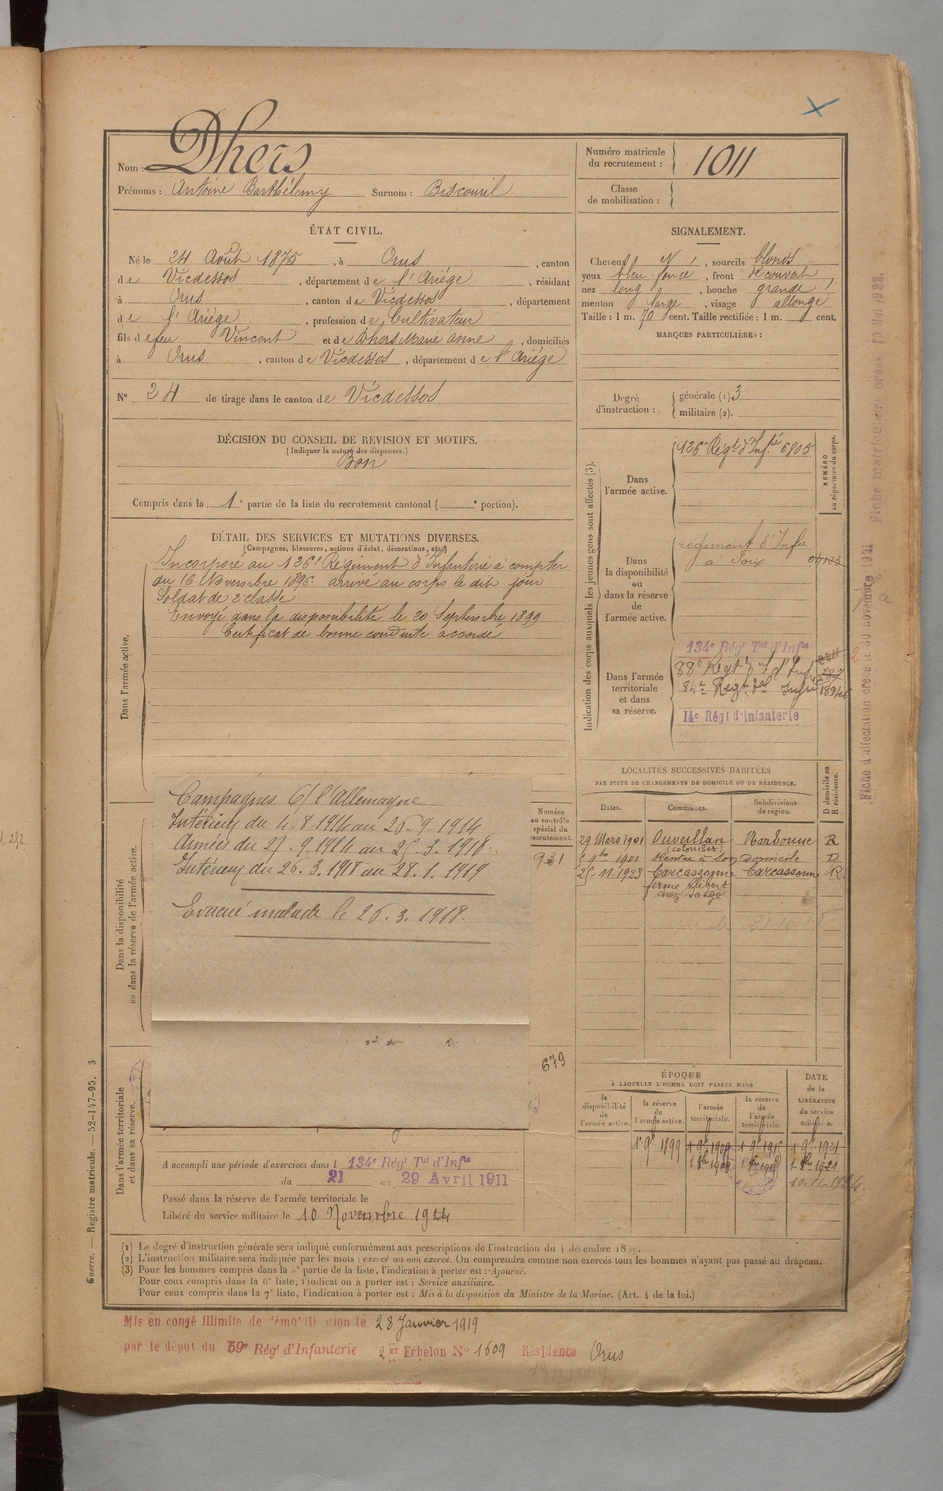 Nom : Dhers
Prénoms : Antoine Barthélemy Surnom : Biscouril
Numéro matricule du recrutement : 1011
Classe de mobilisation :
ÉTAT CIVIL.
Né le 24 Août 1875, à Orus, canton
de Vicdessos, département de l'Ariège, résidant
à Orus, canton de Vicdessos, département
de l'Ariège, profession de Cultivateur
fils de feu Vincent et de Dhers Marie Anne, domiciliés
à Orus, canton de Vicdessos, département de l'Ariège
N° 24 de tirage dans le canton de Vicdessos
SIGNALEMENT.
Cheveux N, sourcils blonds
yeux bleu foncé, front découvert
nez long, bouche grande
menton large, visage allongé
Taille : 1 m. 70 cent. Taille rectifiée : 1 m. cent.
MARQUES PARTICULIÈRES :
Degré d'instruction : générale (1) 3
militaire (2).
DÉCISION DU CONSEIL DE REVISION ET MOTIFS.
(Indiquer la nature des dispenses.)
Bon
Compris dans la 1e partie de la liste du recrutement cantonal ( e portion).
DÉTAIL DES SERVICES ET MUTATIONS DIVERSES.
(Campagnes, blessures, actions d'éclat, décorations, etc.)
Dans l'armée active.
Incorporé au 126e Régiment d'Infanterie à compter
du 16 Novembre 1896 arrivé au corps le dit jour
Soldat de 2e classe
Envoyé dans la disponibilité le 20 Septembre 1899
Certificat de bonne conduite accordé
Campagnes C/ l'Allemagne
Intérieur du 4.8.1914 au 26.9.1914
Armées du 27.9.1914 au 25.3.1918.
Intérieur du 26.3.1918 au 28.1.1919
Evacué malade le 26.3.1918.
Dans la disponibilité ou dans la réserve de l'armée active.
Numéro au contrôle spécial du recrutement.
931
679
Dans l'armée territoriale et dans sa réserve.
A accompli une période d'exercices dans l 134e Rég Tal d'Infie
du 21 au 29 Avril 1911
Passé dans la réserve de l'armée territoriale le
Libéré du service militaire le 10 Novembre 1924
Indication des corps auxquels les jeunes gens sont affectés (3).
NUMÉRO au répertoire du corps.
Dans l'armée active.
126e Régt d'Infie 6705
Dans la disponibilité ou dans la réserve de l'armée active.
régiment d'Infie
à Foix
Dans l'armée territoriale et dans sa réserve.
134e Rég Tal d'Infie
88e Régt
84e Régt
14e Régt d'Infanterie
LOCALITÉS SUCCESSIVES HABITÉES
PAR SUITE DE CHANGEMENTS DE DOMICILE OU DE RÉSIDENCE.
Dates. Communes. Subdivisions de région. D domicile ou R résidence.
29 Mars 1901 Ouveillan Narbonne R
(Colombet)
1901 Rentré à son domicile D
25.11.1923 Carcassonne Carcassonne R
ferme Alibert
chez
ÉPOQUE
À LAQUELLE L'HOMME DOIT PASSER DANS
la disponibilité de l'armée active. la réserve de l'armée active. l'armée territoriale. la réserve de l'armée territoriale.
DATE de la LIBÉRATION du service militaire.
(1) Le degré d'instruction générale sera indiqué conformément aux prescriptions de l'instruction du 4 décembre 1889.
(2) L'instruction militaire sera indiquée par les mots : exercé ou non exercé. On comprendra comme non exercés tous les hommes n'ayant pas passé au drapeau.
(3) Pour les hommes compris dans la 5e partie de la liste, l'indication à porter est : Ajourné.
Pour ceux compris dans la 6e liste, l'indication à porter est : Service auxiliaire.
Pour ceux compris dans la 7e liste, l'indication à porter est : Mis à la disposition du Ministre de la Marine. (Art. 4 de la loi.)
Mis en congé illimité de démobilisation le 28 Janvier 1919
par le dépôt du 59e Rég d'Infanterie 2er Echelon N° 1609 Résidence Orus
Guerre. — Registre matricule. — 52-147-95. 3